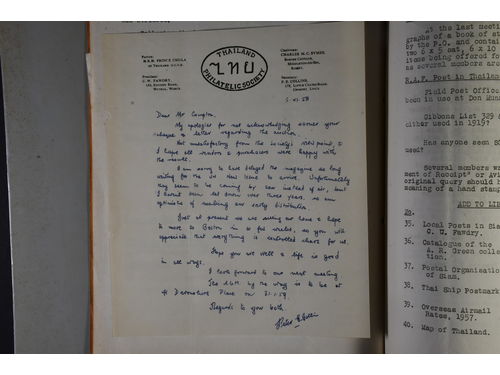 Patron:
H.R.H. PRINCE CHULA
OF THAILAND G.C.V.O.
President:
C. W. FAWDRY,
Chairman:
CHARLES M. C. SYMES,
Secretary:
P. E. COLLINS,
THAILAND
ไทย
PHILATELIC SOCIETY
Dear Mr
My apologies for not acknowledging sooner your
cheque & letter regarding the auction.
Most satisfactory from the Society's viewpoint &
I hope all vendors & purchasers were happy with
the result.
I am sorry to have delayed the magazine so long
waiting for the to arrive. Unfortunately
they seem to be coming by sea instead of air, but
I haven't been let down over three years, so am
optimistic of making an early distribution.
Just at present we are selling our home & hope
to move to in so you will
appreciate that everything is chaos for us.
Hope you are well & life is good
in all ways.
I look forward to our next meeting.
The AGM by the way is to be at
4 Devonshire Place on
Regards to you both,
Peter E. Collins
At the last meeti
graphs of a book of st
by the P.O. and contai
two 6 x 5 sat, 6 x 10
ions being offered for
as several members are
R.A.F. Post in Thailand
Field Post Offic
been in use at Don Mu
Gibbons L29 &
either used in 1919?
Has anyone seen
used?
Several members wa
ment of Receipt" or Avi
original query should h
meaning of a hand stamp
ADD TO LI
No.
35. Local Posts in Sia
C. G. Fawdry.
36. Catalogue of the
A. R. Green colle
tion.
37. Postal Organisation
of Siam.
38. Thai Ship Postmark
39. Overseas Airmail
Rates, 1957.
40. Map of Thailand.